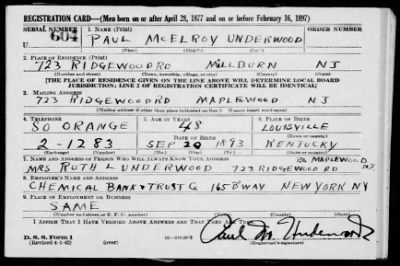 REGISTRATION CARD—(Men born on or after April 28, 1877 and on or before February 16, 1897)
SERIAL NUMBER 1. NAME (Print) ORDER NUMBER
U 604 PAUL McELROY UNDERWOOD
(First) (Middle) (Last)
2. PLACE OF RESIDENCE (Print)
723 RIDGEWOOD RD MILLBURN NJ
(Number and street) (Town, township, village, or city) (County) (State)
[THE PLACE OF RESIDENCE GIVEN ON THE LINE ABOVE WILL DETERMINE LOCAL BOARD
JURISDICTION; LINE 2 OF REGISTRATION CERTIFICATE WILL BE IDENTICAL]
3. MAILING ADDRESS
723 RIDGEWOOD RD MAPLEWOOD NJ
[Mailing address if other than place indicated on line 2. If same insert word same]
4. TELEPHONE 5. AGE IN YEARS 6. PLACE OF BIRTH
SO ORANGE 48 LOUISVILLE
DATE OF BIRTH (Town or county)
2-1283 SEP 20 1893 KENTUCKY
(Exchange) (Number) (Mo.) (Day) (Yr.) (State or country)
7. NAME AND ADDRESS OF PERSON WHO WILL ALWAYS KNOW YOUR ADDRESS
MAPLEWOOD
MRS RUTH L UNDERWOOD 723 RIDGEWOOD RD NJ
8. EMPLOYER'S NAME AND ADDRESS
CHEMICAL BANK & TRUST CO 165 B'WAY NEW YORK NY
9. PLACE OF EMPLOYMENT OR BUSINESS
SAME
(Number and street or R. F. D. number) (Town) (County) (State)
I AFFIRM THAT I HAVE VERIFIED ABOVE ANSWERS AND THAT THEY ARE TRUE.
D. S. S. Form 1
(Revised 4-1-42) Paul M. Underwood
(Registrant's signature)